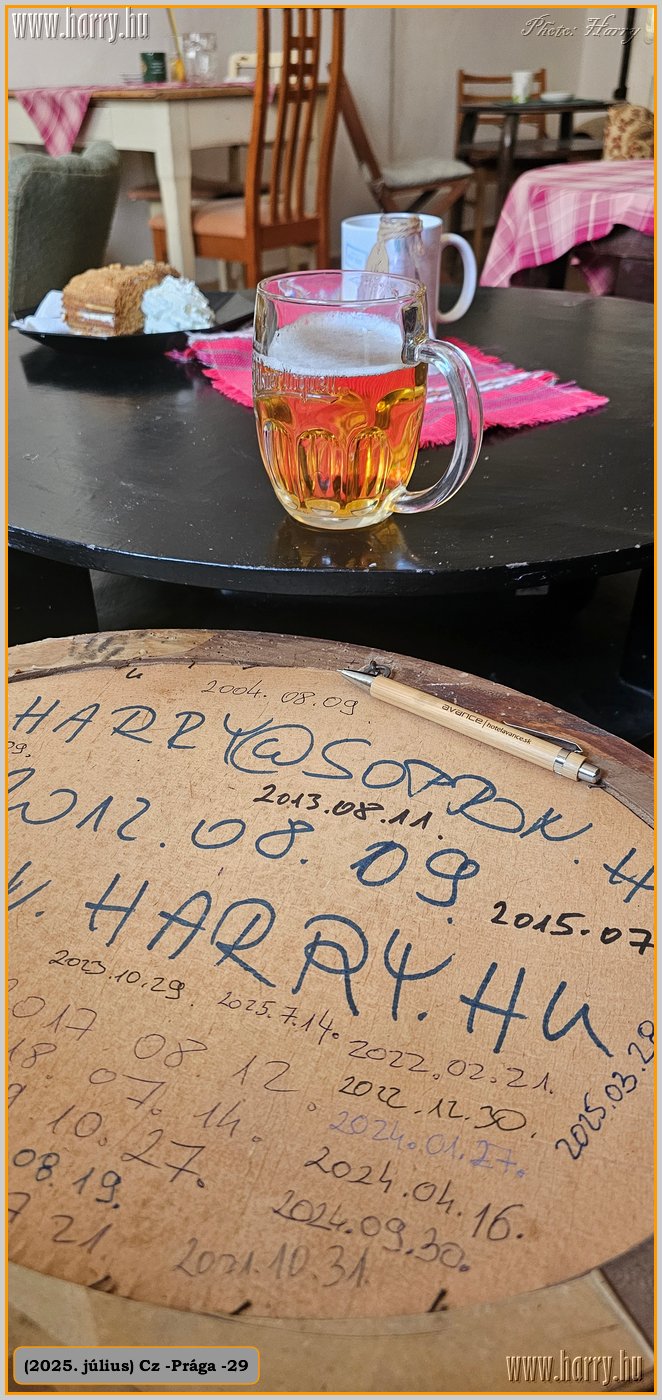 www.harry.hu
Photo: Harry
2004. 08.09.
avance | hotelavance.sk
HARRY@SOPRON. H
09.
2013.08.11.
2012. 08. 09.
2015.07
W. HARRY.HU
2023.10.29.
2025.7.14.
2017 08. 12.
2022.02.21.
18. 07. 14.
2022.12.30.
2025.03.29
2024.01.27.
9 10. 27.
2024.04.16.
08.19.
2024.09.30.
7 21.
2021.10.31.
(2025. július) Cz -Prága -29
www.harry.hu